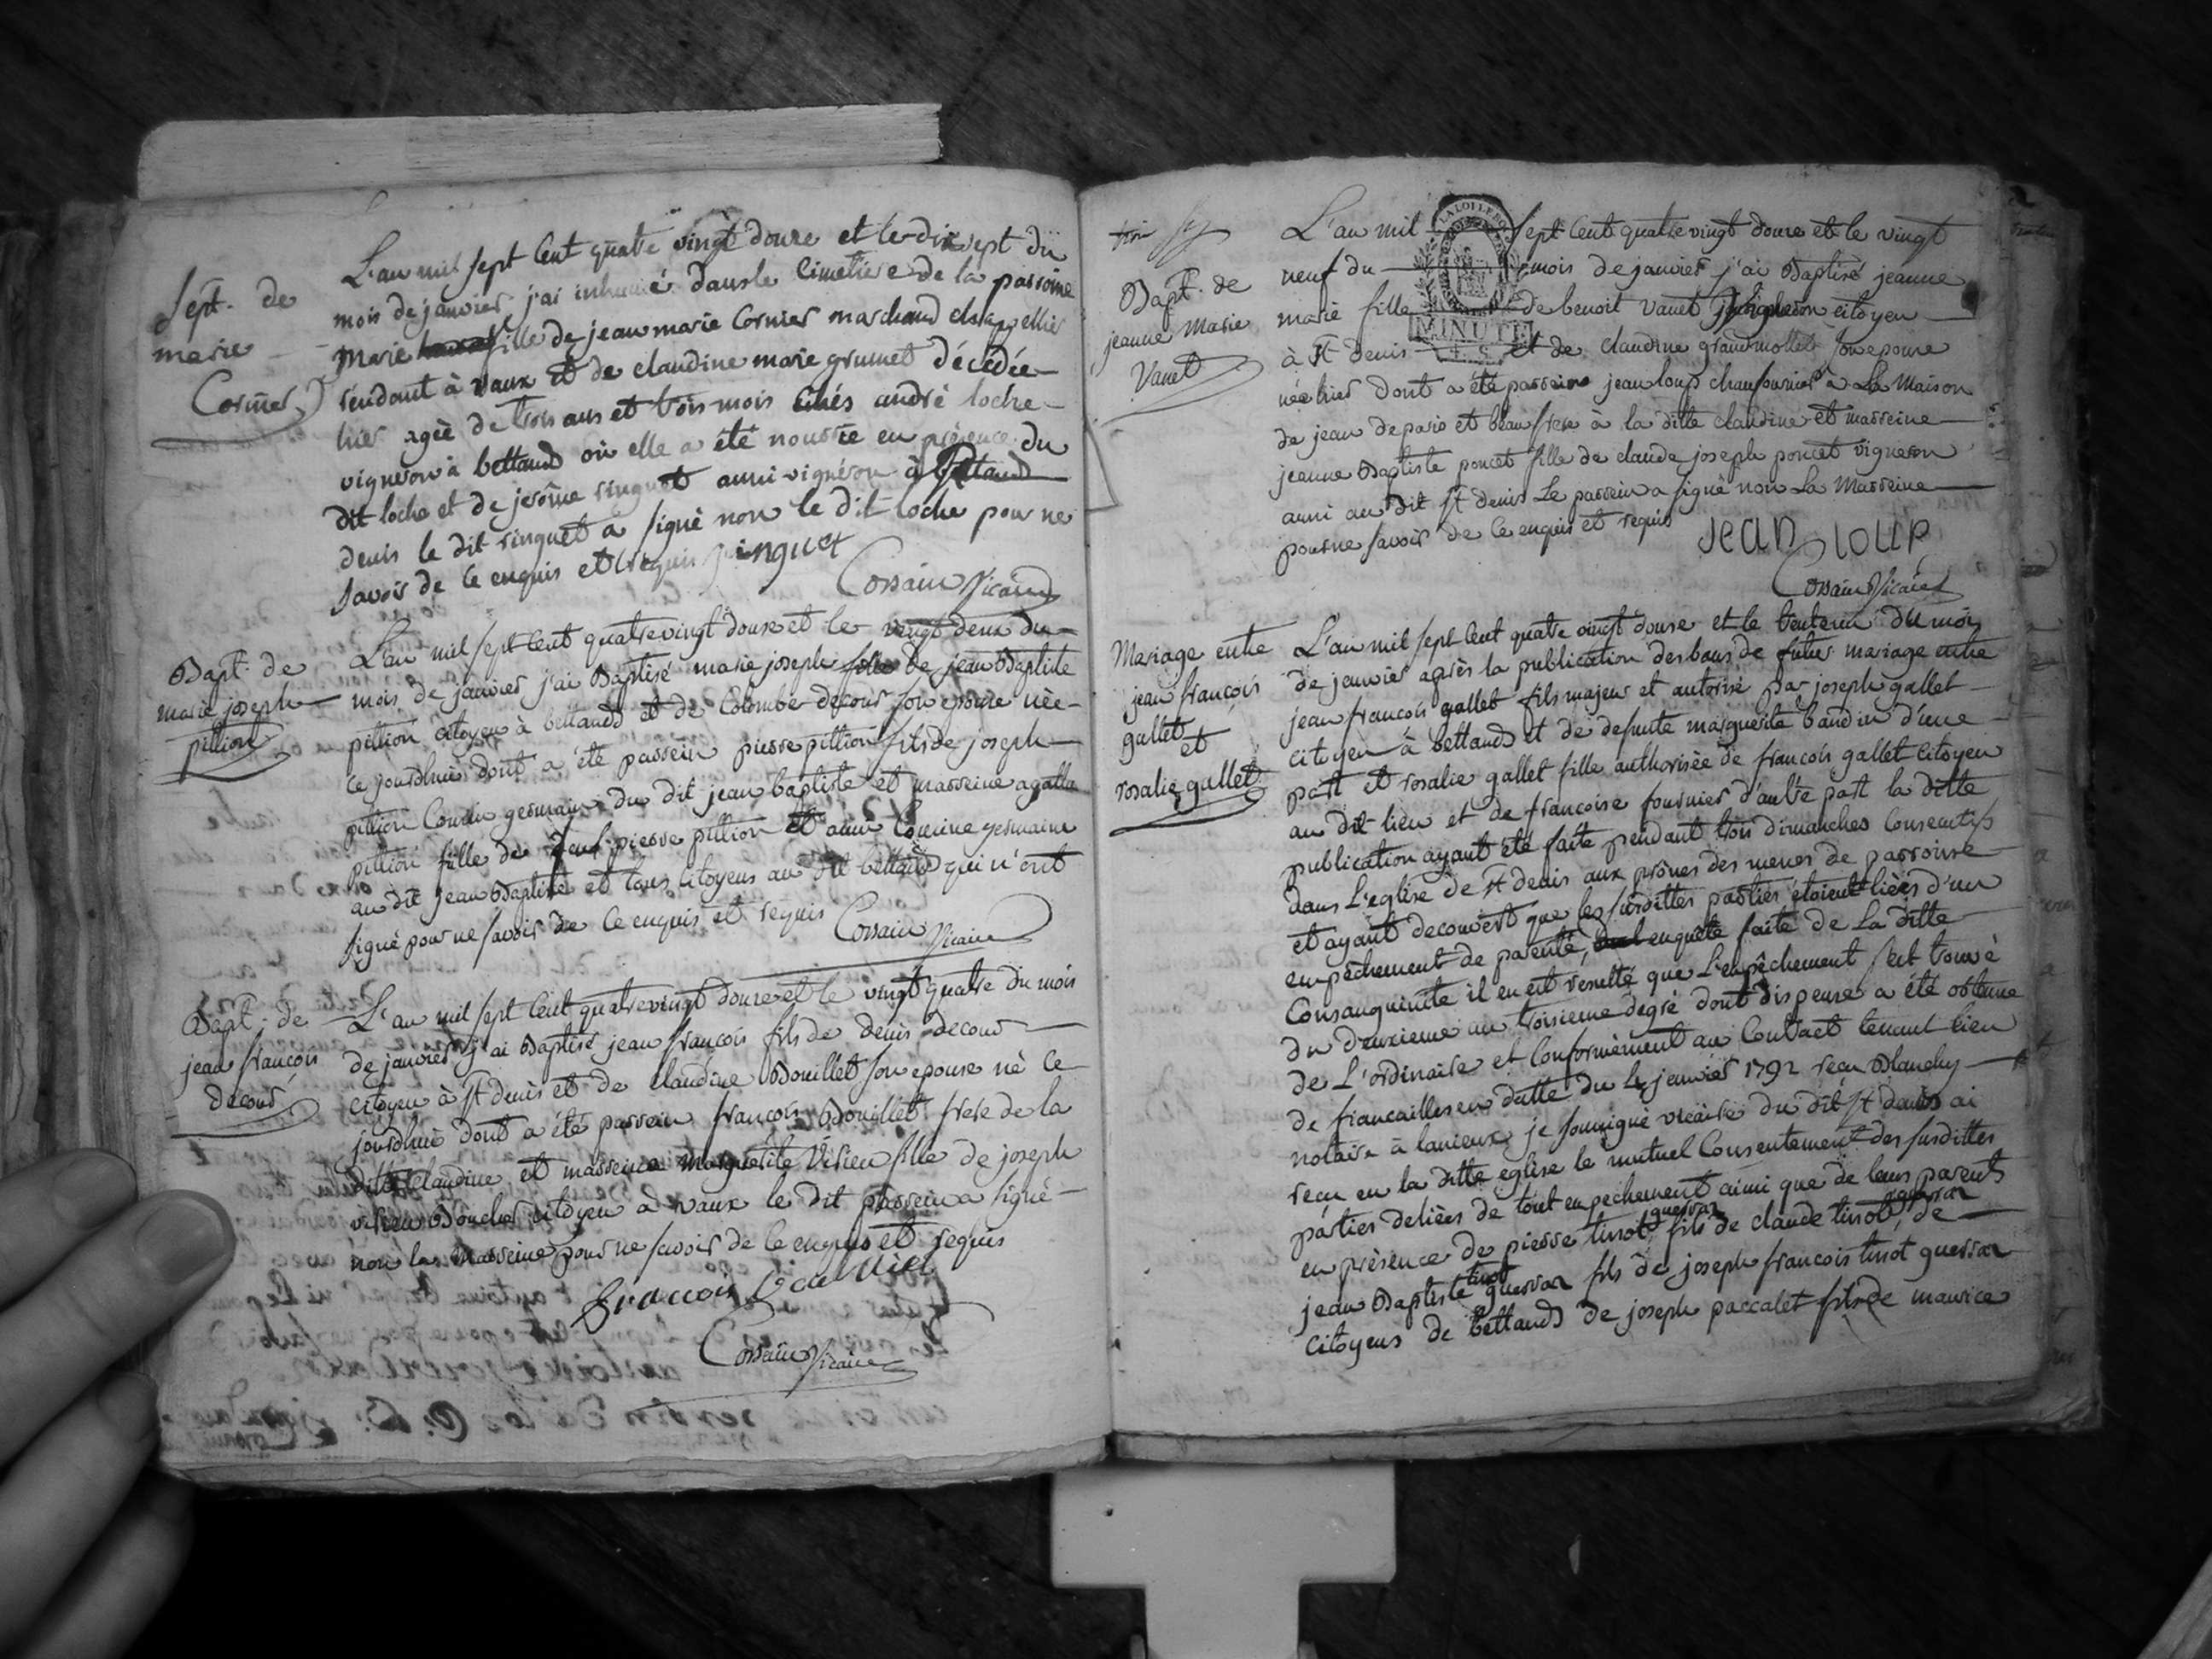 Sept. de
marie
Cormier
L'an mil sept cent quatre vingt douze et le dix sept du
mois de janvier j'ai inhumé dans le cimetiere de la parroisse
marie fille de jean marie Cormier marchand
résidant à vaux et de claudine marie grumet décédée
hier agée de trois ans et trois mois chés andré loche
vigneron à bettand où elle a été nourrie en présence du
dit loche et de jerôme ringuet aussi vigneron à
denis le dit ringuet a signé non le dit loche pour ne
savoir de ce enquis et requis ringuet
Cossain vicaire
Bapt. de
marie joseph
pittion
L'an mil sept cent quatre vingt douze et le vingt deux du
mois de janvier j'ai Baptisé marie joseph fille de jean Baptiste
pittion citoyen à bettand et de Colombe decour son epouse née
ce jourdhui dont a été parrein pierre pittion fils de joseph
pittion cousin germain du dit jean baptiste et marreine agathe
pittion fille de pierre pittion et aussi cousine germaine
au dit jean Baptiste et tous citoyens au dit bettand qui n'ont
signé pour ne savoir de ce enquis et requis Cossain vicaire
Bapt. de
jean françois
decour
L'an mil sept cent quatre vingt douze et le vingt quatre du mois
de janvier j'ai Baptisé jean françois fils de denis decour
citoyen à st denis et de claudine Bouillet son epouse né ce
jourdhui dont a été parrein françois Bouillet frere de la
ditte claudine et marreine marguerite Vivien fille de joseph
vivien Boucher citoyen à vaux le dit parrein a signé
non la marreine pour ne savoir de ce enquis et requis
francois
Cossain vicaire
Bapt. de
jeanne Marie
Vanet
LA LOI LE ROI
MINUTE
L'an mil sept cent quatre vingt douze et le vingt
neuf du mois de janvier j'ai Baptisé jeanne
marie fille de benoit vanet vigneron citoyen
à St denis et de claudine grandmollet son epouse
née hier dont a été parrein jean loup chaufournier à la Maison
de jean de paris et beau frere à la ditte claudine et marreine
jeanne Baptiste poncet fille de claude joseph poncet vigneron
aussi au dit st denis Le parrein a signé non La Marreine
pour ne savoir de ce enquis et requis jean loup
Cossain vicaire
Mariage entre
jean françois
gallet
et
rosalie gallet
L'an mil sept cent quatre vingt douze et le trente un du mois
de janvier après la publication des bans de futur mariage entre
jean françois gallet fils majeur et autorisé par joseph gallet
citoyen à bettand et de defunte marguerite baudin d'une
part et rosalie gallet fille authorisée de françois gallet citoyen
au dit lieu et de françoise fournier d'autre part la ditte
publication ayant été faite pendant trois dimanches consecutifs
dans L'eglise de st denis aux prônes des messes de parroisse
et ayant decouvert que les susdittes parties étoient liées d'un
empêchement de parenté, enquête faite de La ditte
Consanguinité il en est resulté que L'empêchement s'est trouvé
du deuxieme au troisieme degré dont dispense a été obtenue
de L'ordinaire et conformément au Contract tenant lieu
de fiancailles en datte du 4 janvier 1792 recu Blanchy
notaire à lanieux je soussigné vicaire du dit st denis ai
recu en la ditte eglise le mutuel Consentement des susdittes
parties deliées de tout empechement ainsi que de leurs parents
en présence de pierre tissot guerraz fils de claude tissot guerraz, de
jean Baptiste tissot guerraz fils de joseph francois tissot guerraz
citoyens de bettand de joseph paccalet fils de maurice